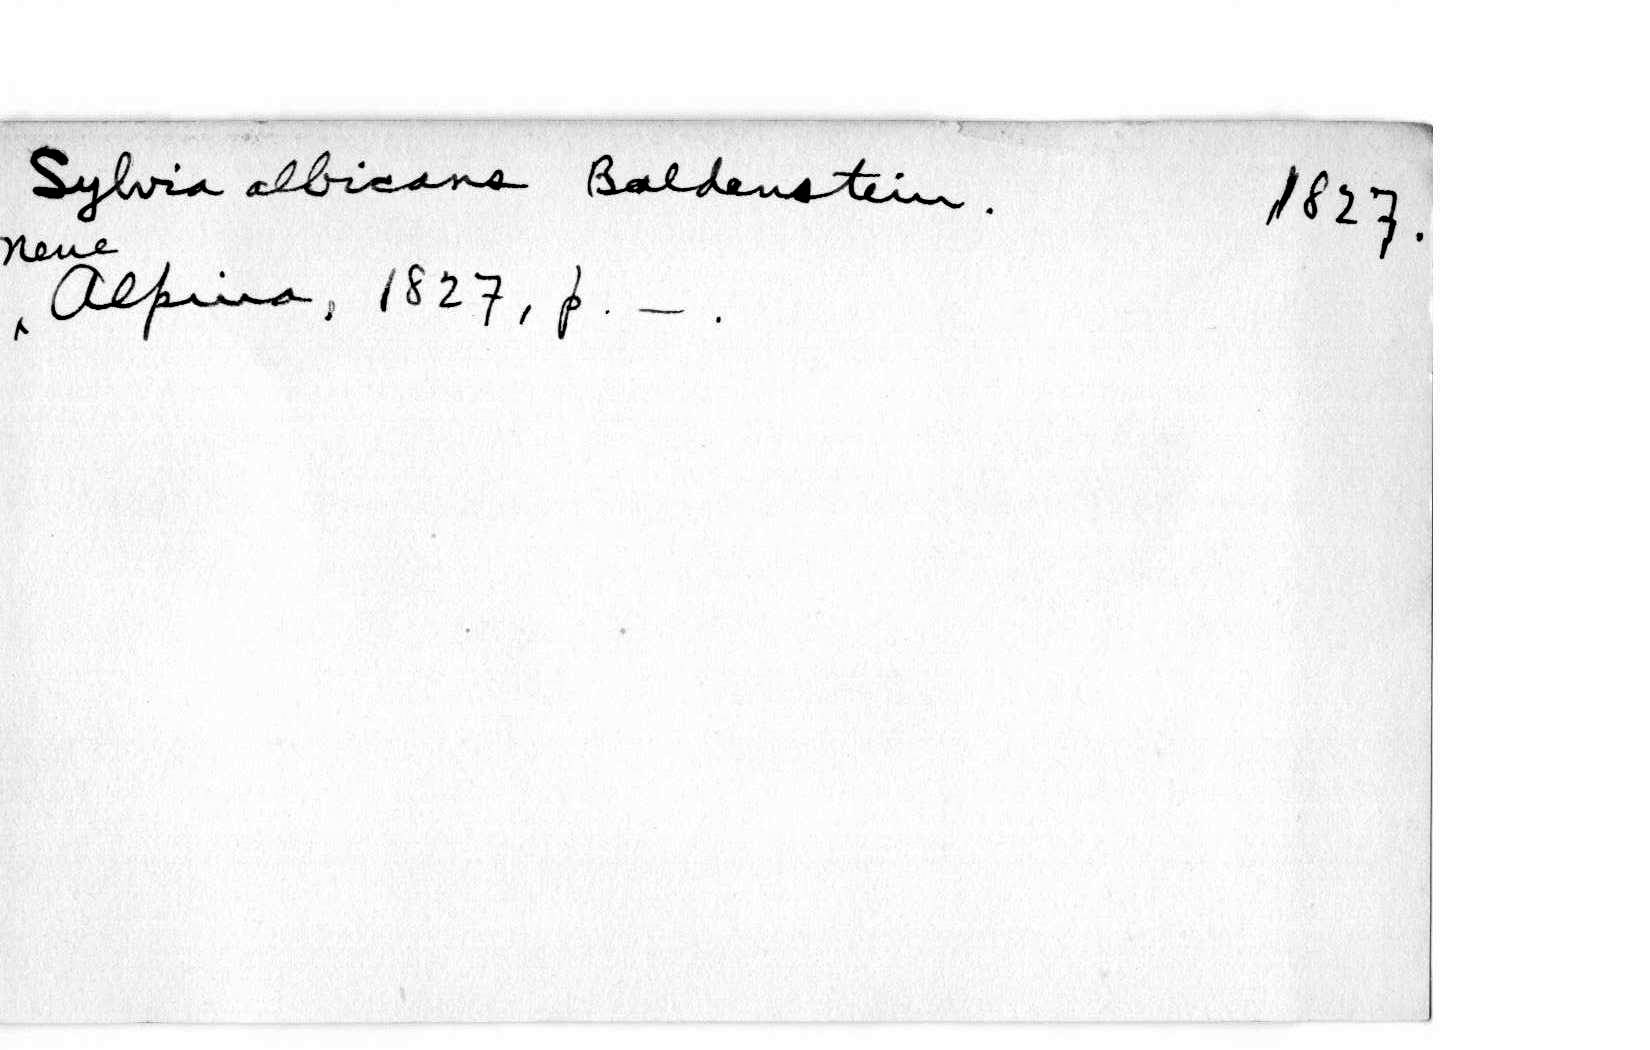 Sylvia albicans Baldenstein. 1827.
Neue
‸ Alpina, 1827, p. — .